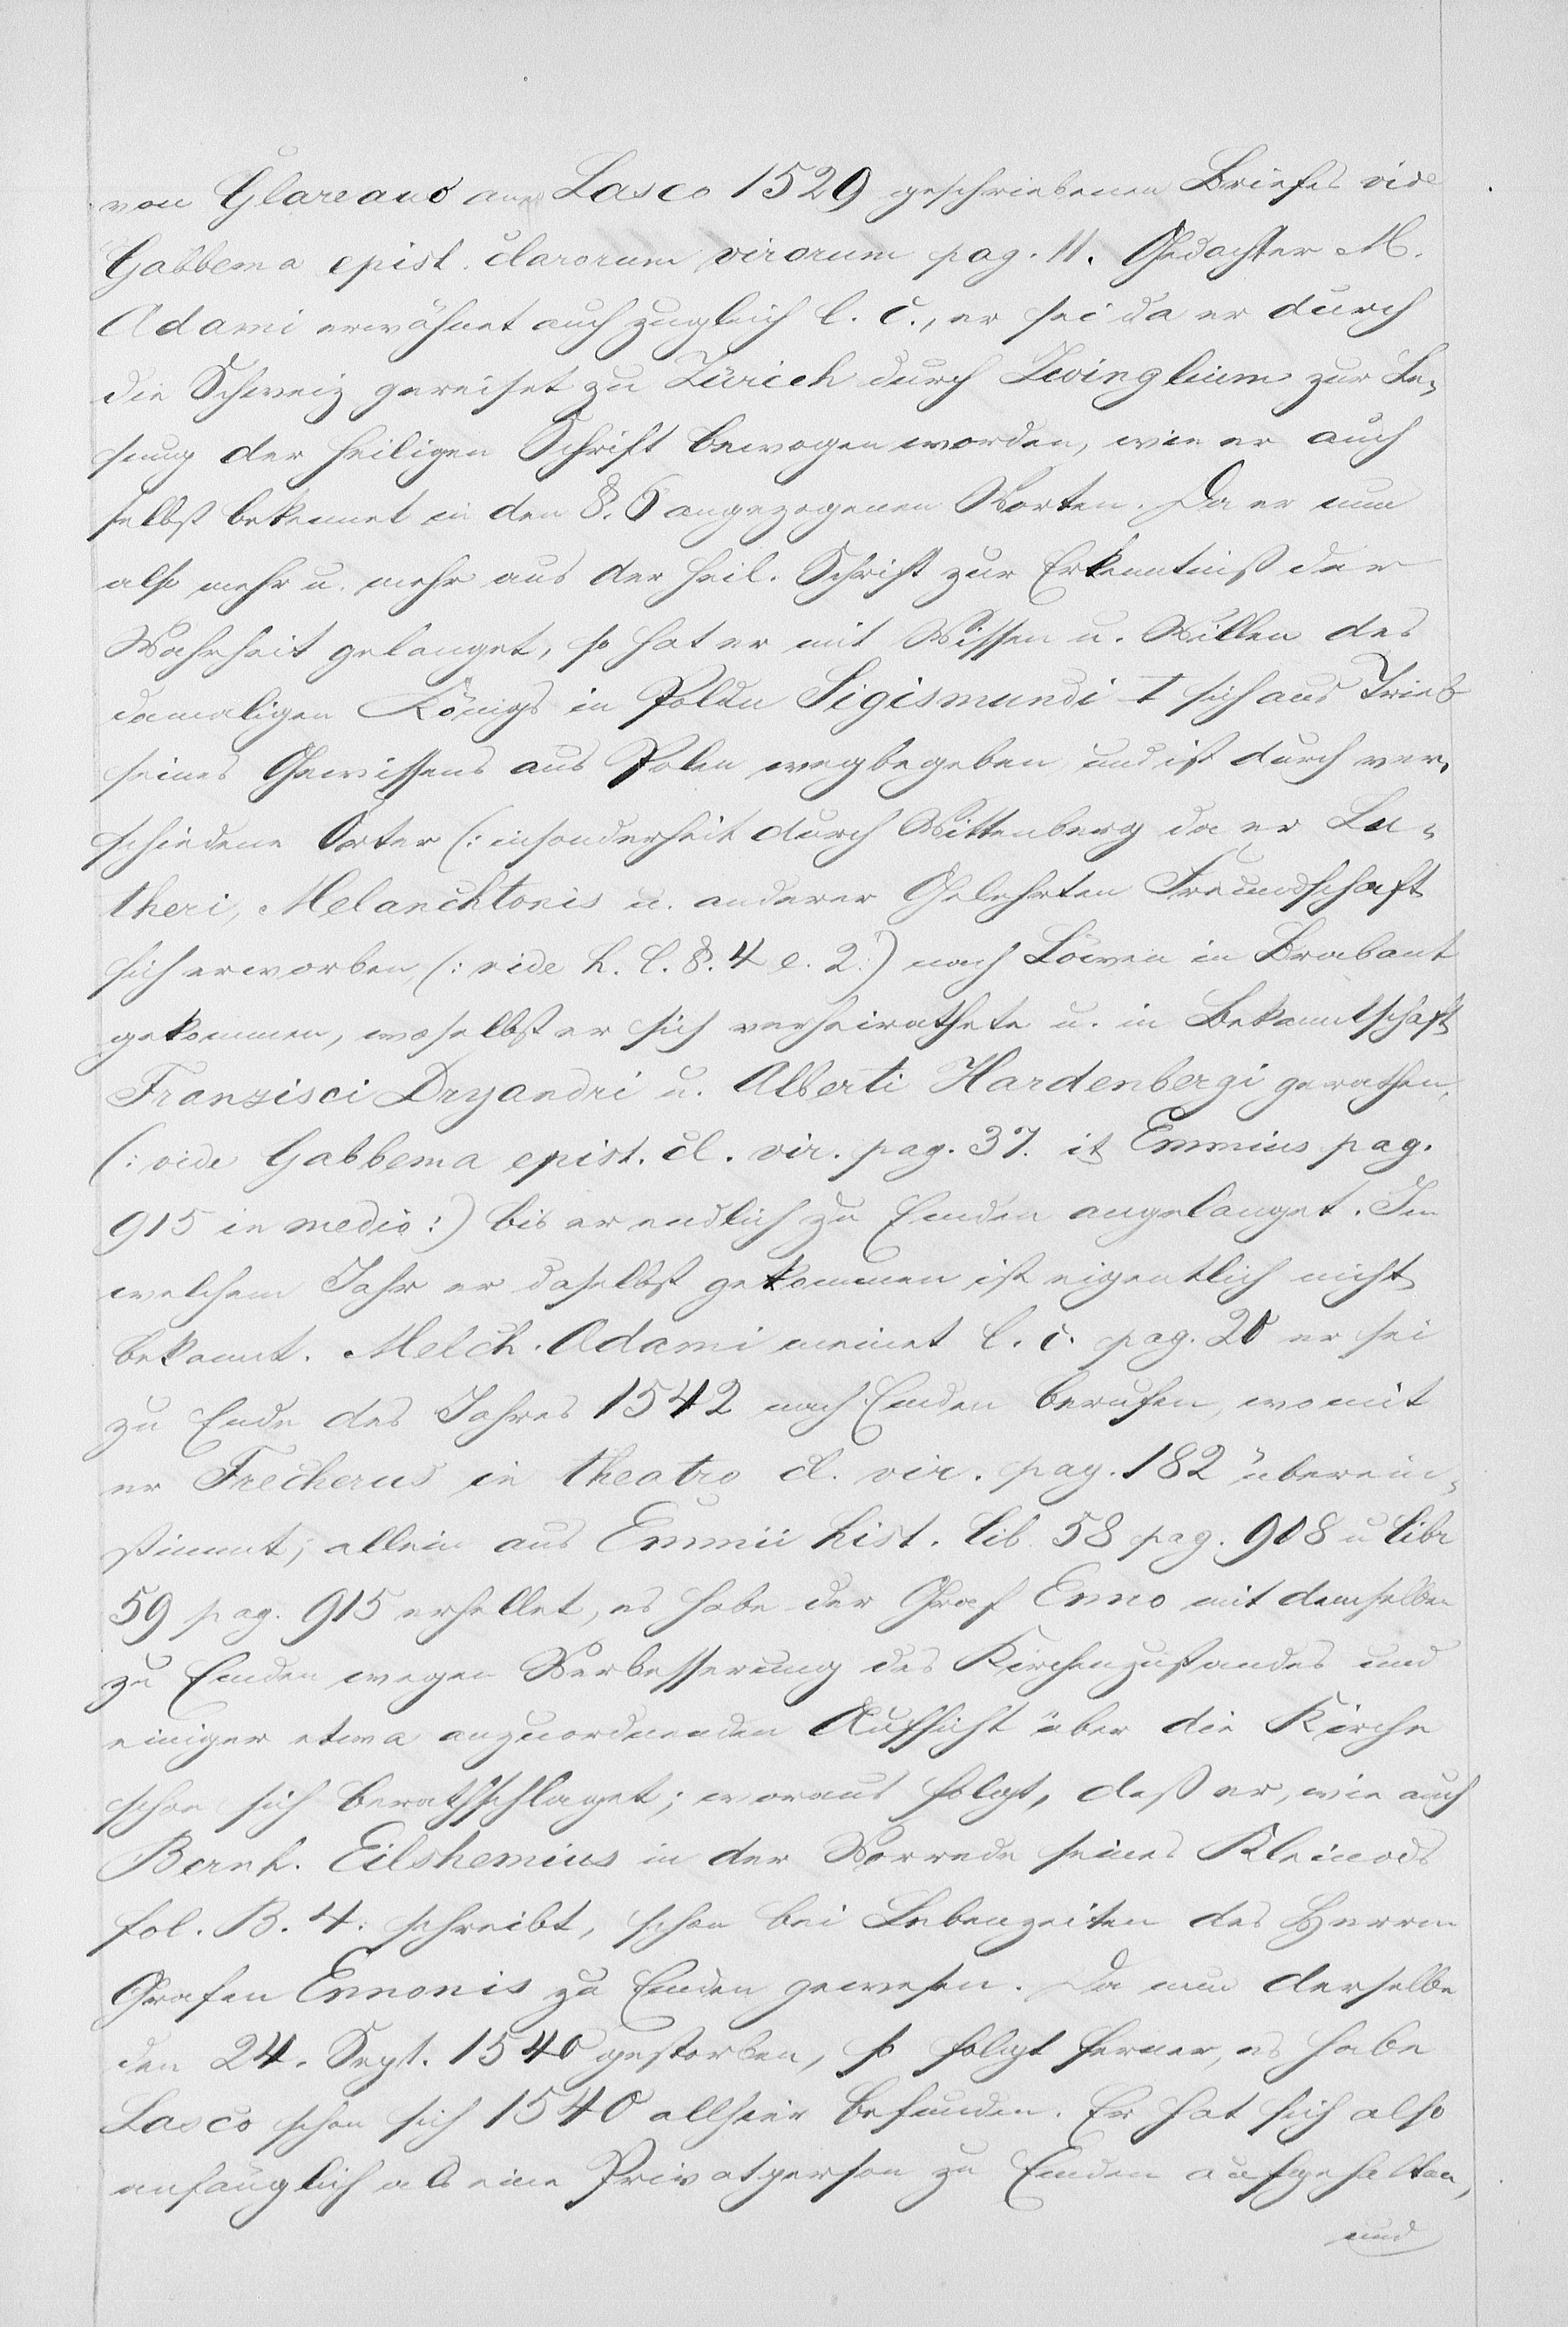 von Glareano an Lasco 1529 geschriebenen Briefes vide
Gabbema epist. clarorum virorum pag. 11. Gedachter M.
Adami erwähnet auch zugleich l. c., er sei da er durch
die Schweiz gereiset zu Zürich durch Zwinglium zur Le-
sung der heiligen Schrift bewogen worden, wie er auch
selbst bekennet in den §. 6 angezogenen Worten. Da er nun
also mehr u. mehr aus der heil. Schrift zur Erkenntniß der
Wahrheit gelanget, so hat er mit Wissen u. Willen des
damaligen Königs in Polen Sigismundi I sich aus Trieb
seines Gewissens aus Polen wegbegeben und ist durch ver-
schiedene Örter (: insonderheit durch Wittenberg da er Lu-
theri, Melanchtonis u. anderer Gelehrten Freundschaft
sich erworben (: vide h. l. §. 4 e. 2 :) nach Löwen in Brabant
gekommen, woselbst er sich verheirathete u. in Bekanntschaft
Franzisci Dryandri u. Alberti Hardenbergi gerathen,
(: vide Gabbema epist. cl. vir. pag. 37. it Emmius pag.
915 in medio :) bis er endlich zu Emden angelanget. In
welchem Jahr er daselbst gekommen ist eigentlich nicht
bekannt. Melch. Adami meinet l. c. pag. 20 er sei
zu Ende des Jahres 1542 nach Emden berufen, womit
er Frecherus in theatro cl. vir. pag. 182 überein-
stimmt; allein aus Emmii hist. lib. 58 pag. 908 u libr
59 pag. 915 erhellet, es habe der Graf Enno mit demselben
zu Emden wegen Verbesserung des Kirchenzustandes und
einiger etwa anzuordnenden Aufsicht über die Kirche
schon sich berathschlaget; woraus folgt, daß er, wie auch
Bernh. Eilshemius in der Vorrede seines Kleinods
fol. B. 4. schreibt, schon bei Lebenzeiten des Herrn
Grafen Ennonis zu Emden gewesen. Da nun derselbe
den 24. Sept. 1540 gestorben, so folgt ferner, es habe
Lasco schon sich 1540 allhier befunden. Er hat sich also
anfänglich als eine Privatperson zu Emden aufgehalten,
und